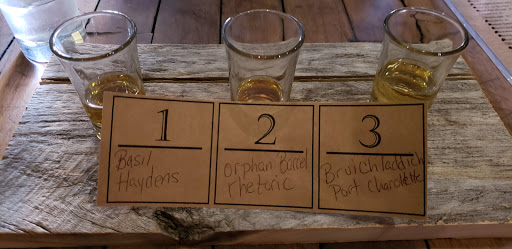 1
Basil
Haydens
2
Orphan Barrel
rhetoric
3
Bruichladdich
Port Charolette